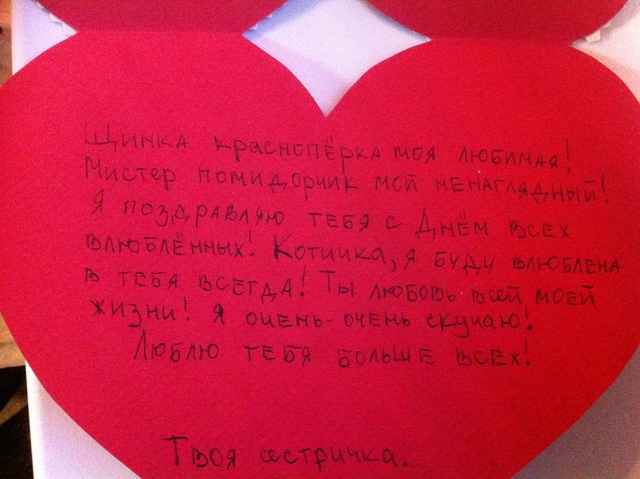 Щинка краснопёрка моя любимая!
Мистер помидорчик мой ненаглядный!
Я поздравляю тебя с Днём всех
влюблённых! Котичка, я буду влюблена
в тебя всегда! Ты любовь всей моей
жизни! Я очень-очень скучаю!
Люблю тебя больше всех!
Твоя сестричка.